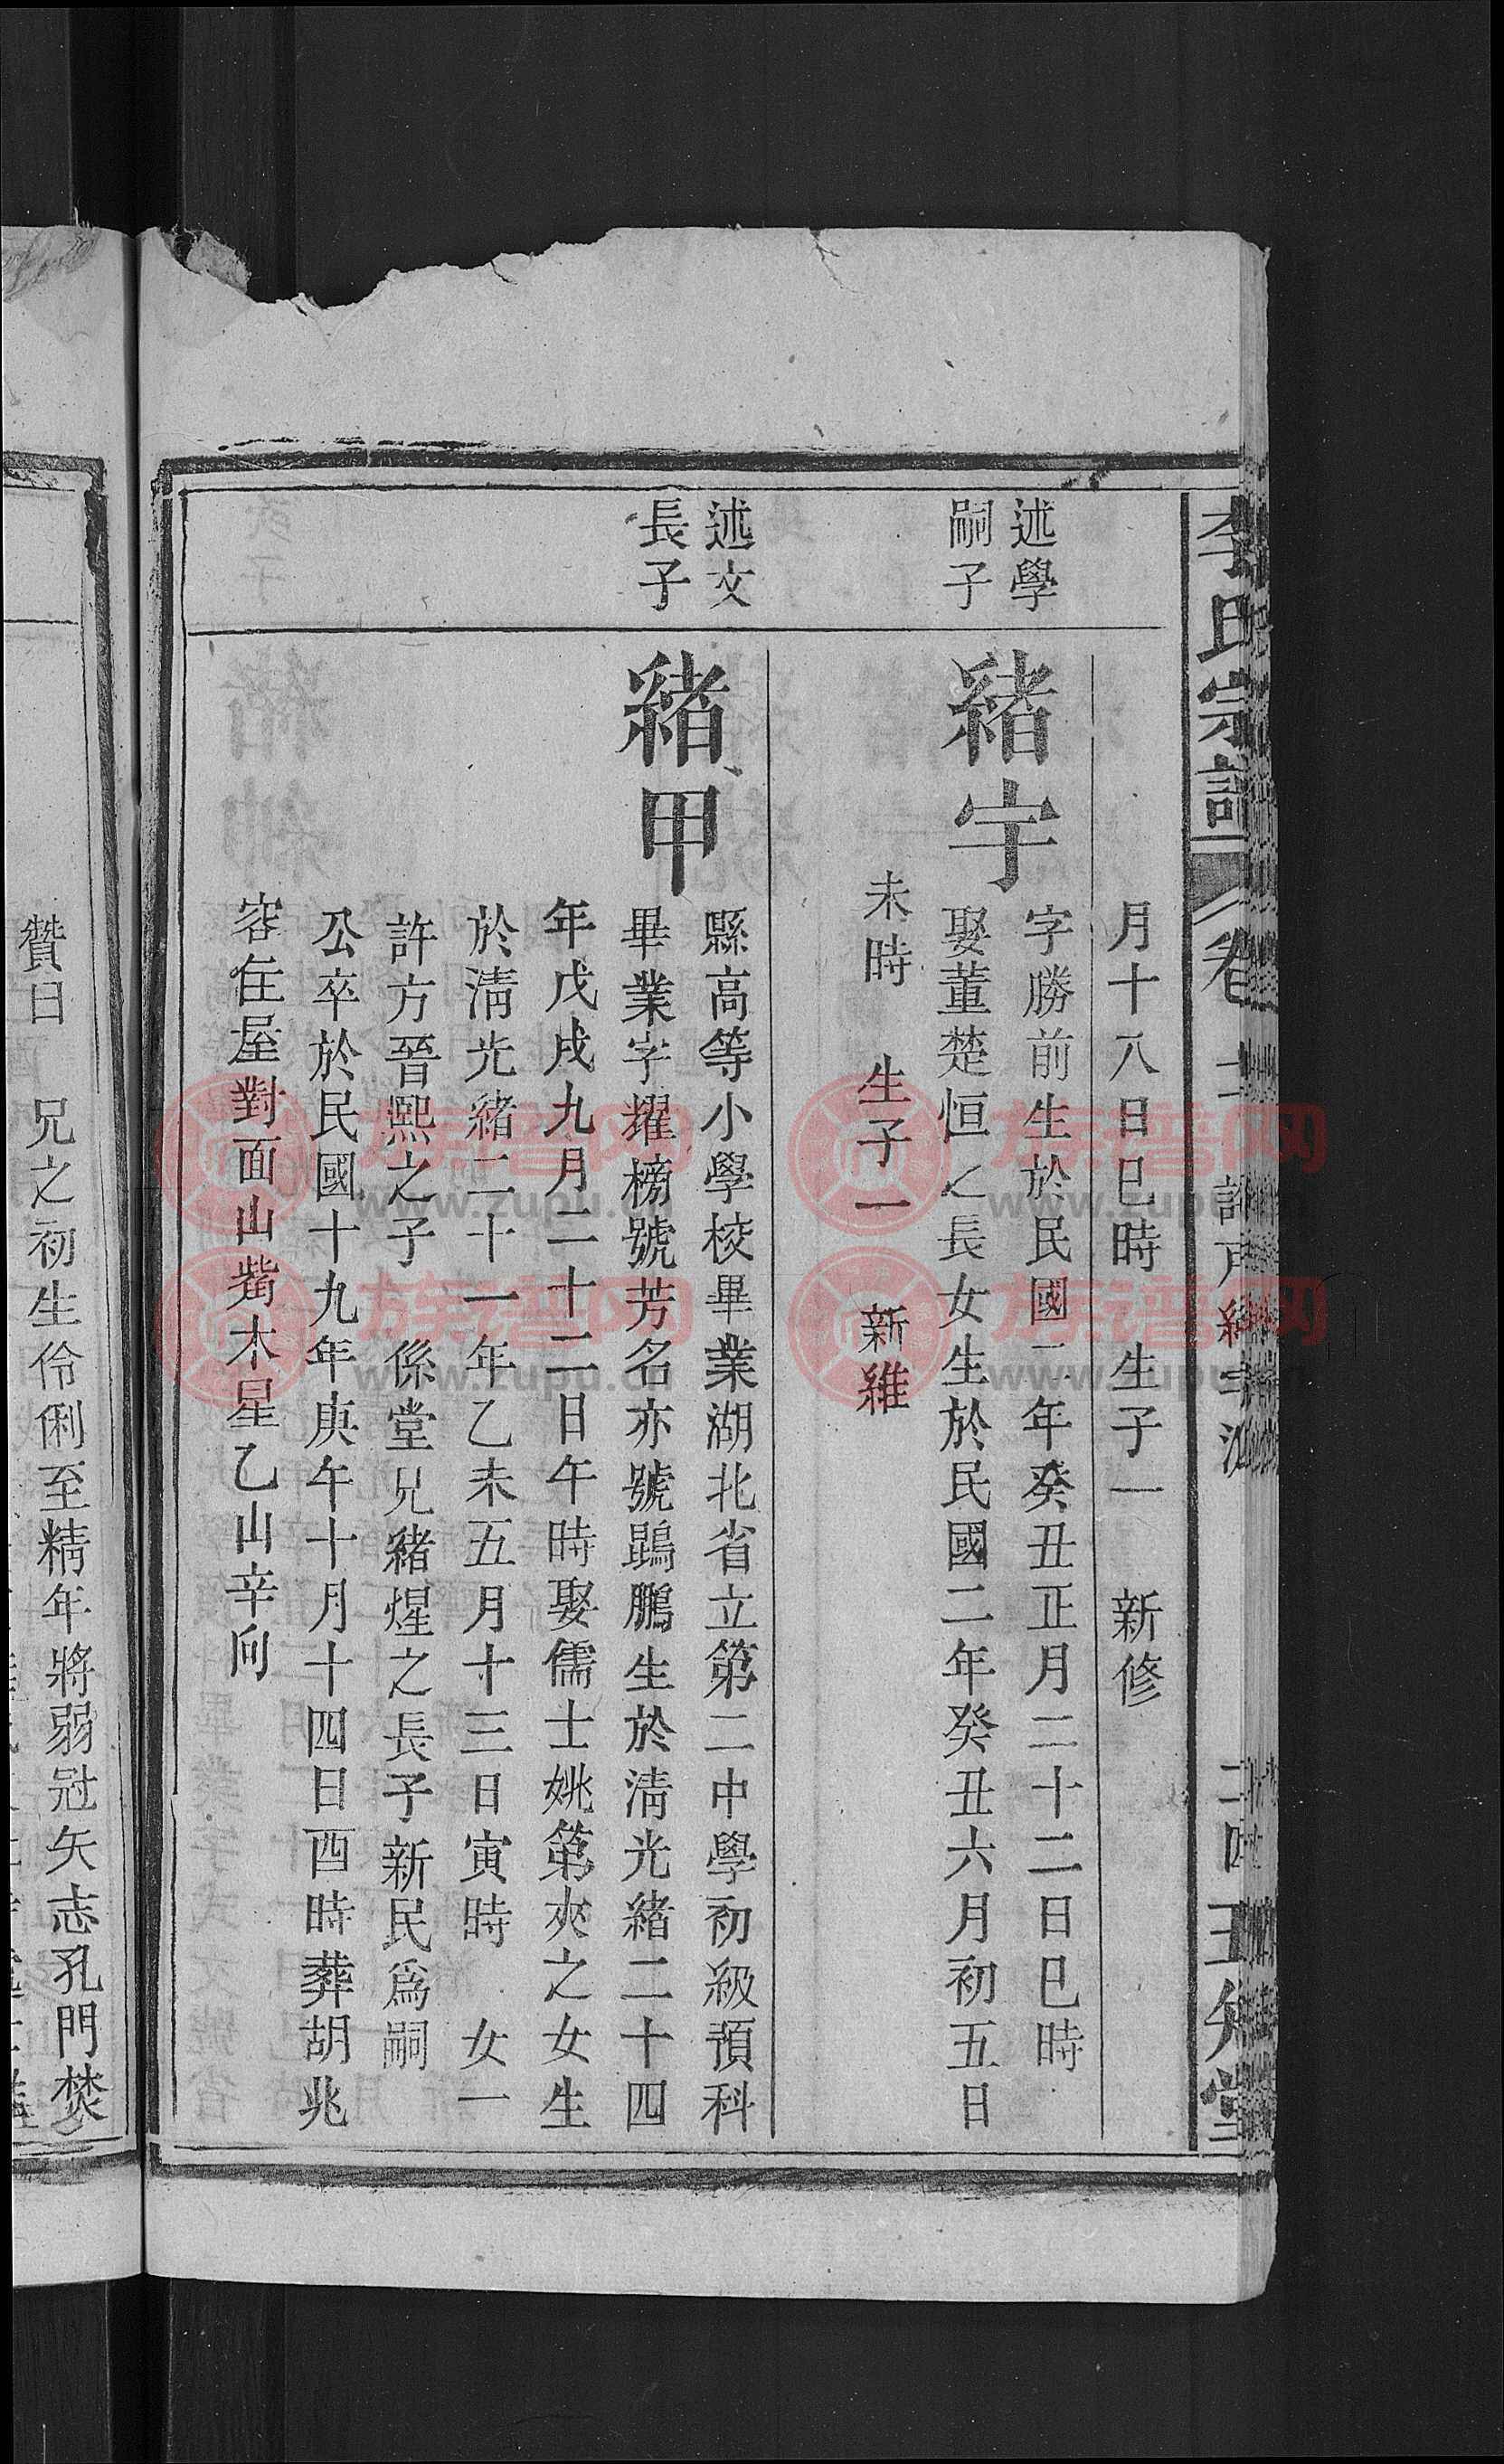 李氏宗譜
卷
王知堂
月十八日巳時　生子一　新修
述學
嗣子
緒宇
字勝前生於民國二年癸丑正月二十二日巳時
娶董楚恒之長女生於民國二年癸丑六月初五日
未時　生子一　新維
述文
長子
緒甲
縣高等小學校畢業湖北省立第二中學初級預科
畢業字擢榜號芳名亦號鵾鵬生於清光緒二十四
年戊戌九月二十二日午時娶儒士姚第夾之女生
於清光緒二十一年乙未五月十三日寅時　女一
許方晉熙之子　係堂兄緒煋之長子新民為嗣
公卒於民國十九年庚午十月十四日酉時葬胡兆
容住屋對面山嘴木星乙山辛向
贊曰　兄之初生伶俐至精年將弱冠矢志孔門焚
族谱网
www.zupu.cn
族谱网
www.zupu.cn
族谱网
www.zupu.cn
族谱网
www.zupu.cn